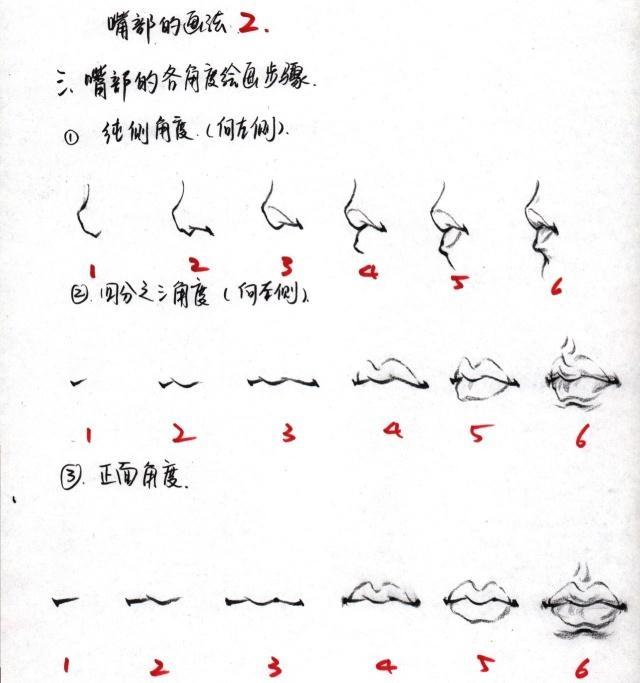 嘴部的画法 2.
三、嘴部的各角度绘画步骤.
① 纯侧角度.(向左侧).
1 2 3 4 5 6
②. 四分之三角度 (向左侧).
1 2 3 4 5 6
③. 正面角度.
1 2 3 4 5 6